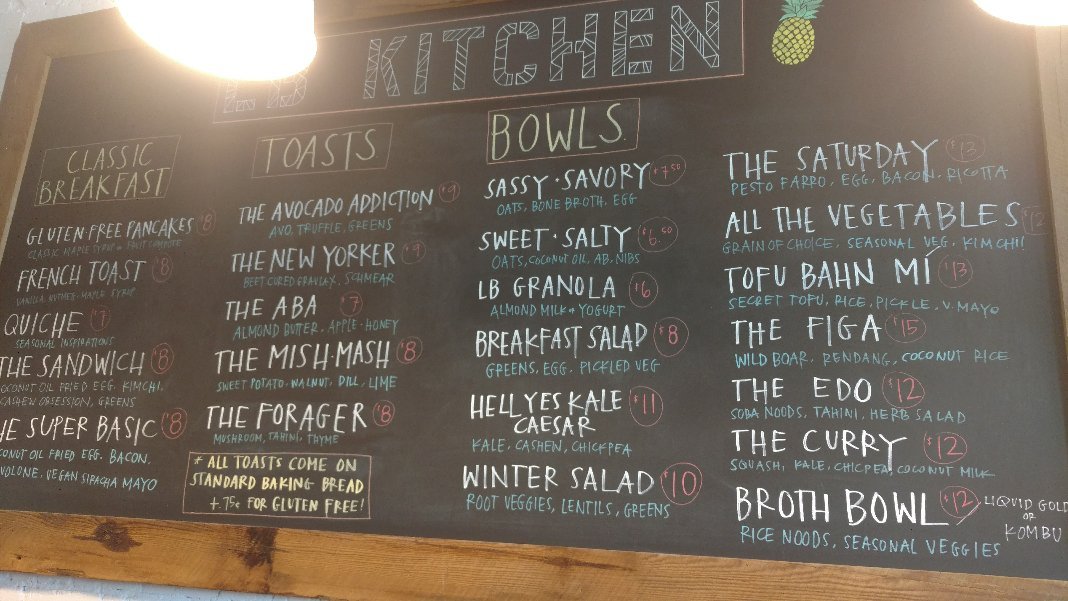 KITCHEN
CLASSIC
BREAKFAST
GLUTEN·FREE PANCAKES $8
CLASSIC MAPLE SYRUP or FRUIT COMPOTE
FRENCH TOAST $8
VANILLA, NUTMEG, MAPLE SYRUP
QUICHE $7
SEASONAL INSPIRATIONS
THE SANDWICH $8
COCONUT OIL FRIED EGG, KIMCHI,
CASHEW OBSESSION, GREENS
HE SUPER BASIC $8
CONUT OIL FRIED EGG, BACON,
VOLONE, VEGAN SIRACHA MAYO
TOASTS
THE AVOCADO ADDICTION $9
AVO, TRUFFLE, GREENS
THE NEW YORKER $9
BEET CURED GRAVLAX, SCHMEAR
THE ABA $7
ALMOND BUTER, APPLE, HONEY
THE MISH·MASH $8
SWEET POTATO, WALNUT, DILL, LIME
THE FORAGER $8
MUSHROOM, TAHINI, THYME
* ALL TOASTS COME ON
STANDARD BAKING BREAD
+ .75¢ FOR GLUTEN FREE!
BOWLS
SASSY·SAVORY $7.50
OATS, BONE BROTH, EGG
SWEET·SALTY $6.50
OATS, COCONUT OIL, AB, NIBS
LB GRANOLA $6
ALMOND MILK or YOGURT
BREAKFAST SALAD $8
GREENS, EGG, PICKLED VEG
HELL YES KALE $11
CAESAR
KALE, CASHEW, CHICKPEA
WINTER SALAD $10
ROOT VEGGIES, LENTILS, GREENS
THE SATURDAY $13
PESTO FARRO, EGG, BACON, RICOTTA
ALL THE VEGETABLES $12
GRAIN OF CHOICE, SEASONAL VEG, KIMCHI
TOFU BAHN MÍ $13
SECRET TOFU, RICE, PICKLE, V. MAYO
THE FIGA $15
WILD BOAR, RENDANG, COCONUT RICE
THE EDO $12
SOBA NOODS, TAHINI, HERB SALAD
THE CURRY $12
SQUASH, KALE, CHICPEA, COCONUT MILK
BROTH BOWL $12 LIQUID GOLD
OR
KOMBU
RICE NOODS, SEASONAL VEGGIES